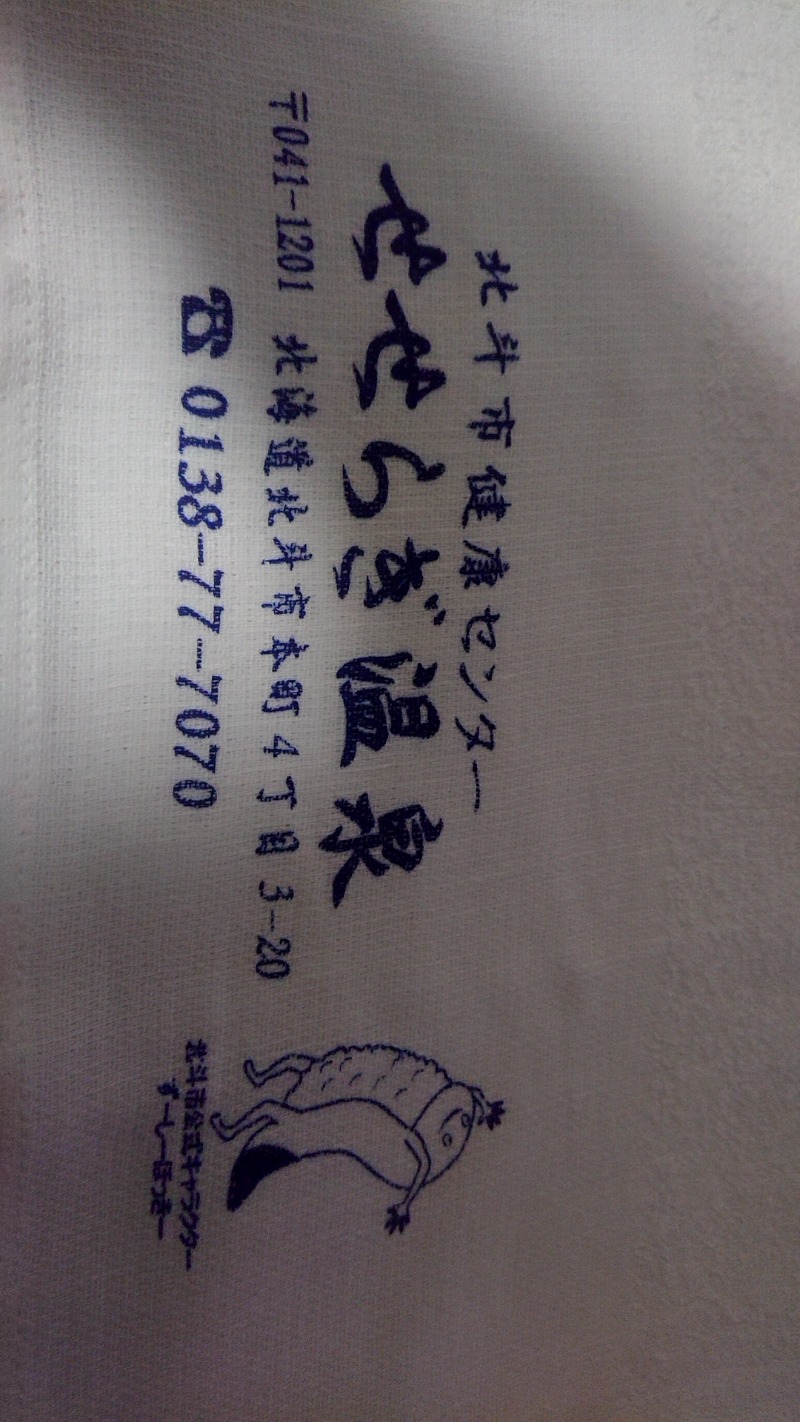 北斗市健康センター
せせらぎ温泉
〒041-1201 北海道北斗市本町4丁目3-20
☎0138-77-7070
北斗市公式キャラクター
ずーしーほっきー